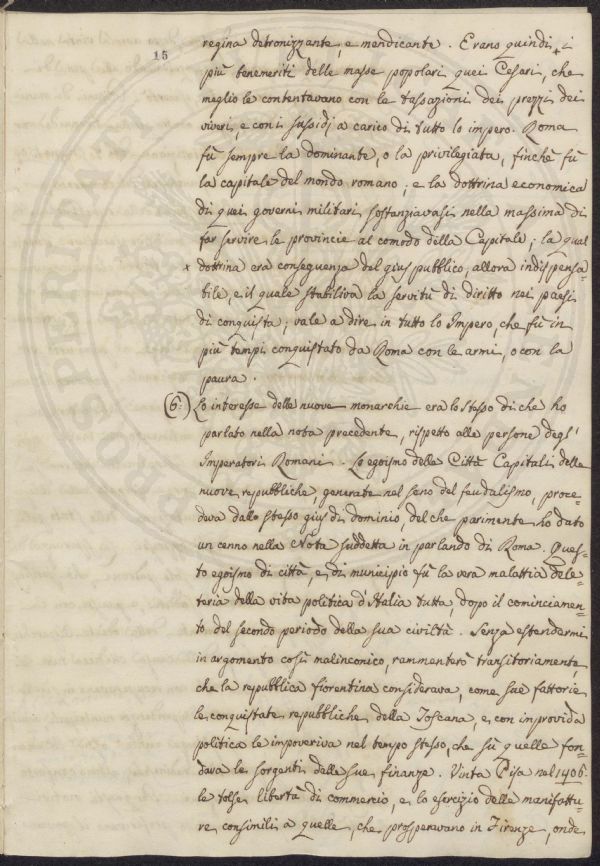 15
regina detronizzante, e mendicante. Erano quindi i
più benemeriti delle masse popolari quei Cesari, che
meglio le contentavano con le tassazioni dei prezzi dei
viveri, e con i sussidj a carico di tutto lo impero. Roma
fù sempre la dominante, o la privilegiata, finchè fù
la capitale del mondo romano; e la dottrina economica
di quei governi militari sostanziavasi nella massima di
far servire le provincie al comodo della Capitale; la qual
dottrina era conseguenza del gius pubblico, allora indispensa-
bile, e il quale stabiliva la servitù di diritto nei paesi
di conquista; vale a dire in tutto lo Impero, che fù in
più tempi conquistato da Roma con le armi, o con la
paura.
(6:) Lo interesse delle nuove monarchie era lo stesso di che ho
parlato nella nota precedente, rispetto alle persone degl'
Imperatori Romani. Lo egoismo delle Città Capitali delle
nuove repubbliche, generate nel seno del feudalismo, proce-
deva dallo stesso gius di dominio, del che parimente ho dato
un cenno nella Nota suddetta in parlando di Roma. Ques-
to egoismo di città, e di municipio fù la vera malattia dele-
teria della vita politica d'Italia tutta, dopo il cominciamen-
to del secondo periodo della sua civiltà. Senza estendermi
in argomento così malinconico, rammenterò transitoriamente,
che la repubblica fiorentina considerava, come sue fattorie
le conquistate repubbliche della Toscana, e con improvida
politica le impoveriva nel tempo stesso, che sù quelle fon-
dava le sorgenti delle sue finanze. Vinta Pisa nel 1406:
le tolse libertà di commercio, e lo esercizio delle manifattu-
re consimili a quelle, che prosperavano in Firenze, onde